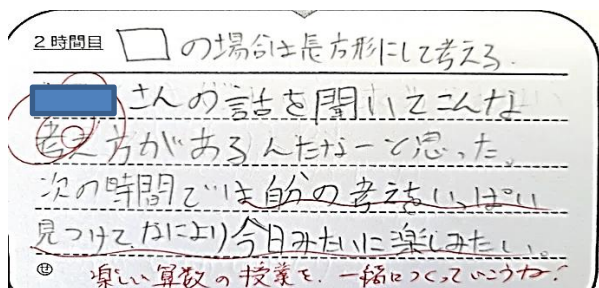 2時間目 □の場合は長方形にして考える.
さんの話を聞いてこんな
考え方があるんだなーと思った。
次の時間では自分の考えをいっぱい
見つけて、なにより今日みたいに楽しみたい。
せ 楽しい算数の授業を、一緒につくっていこうね!